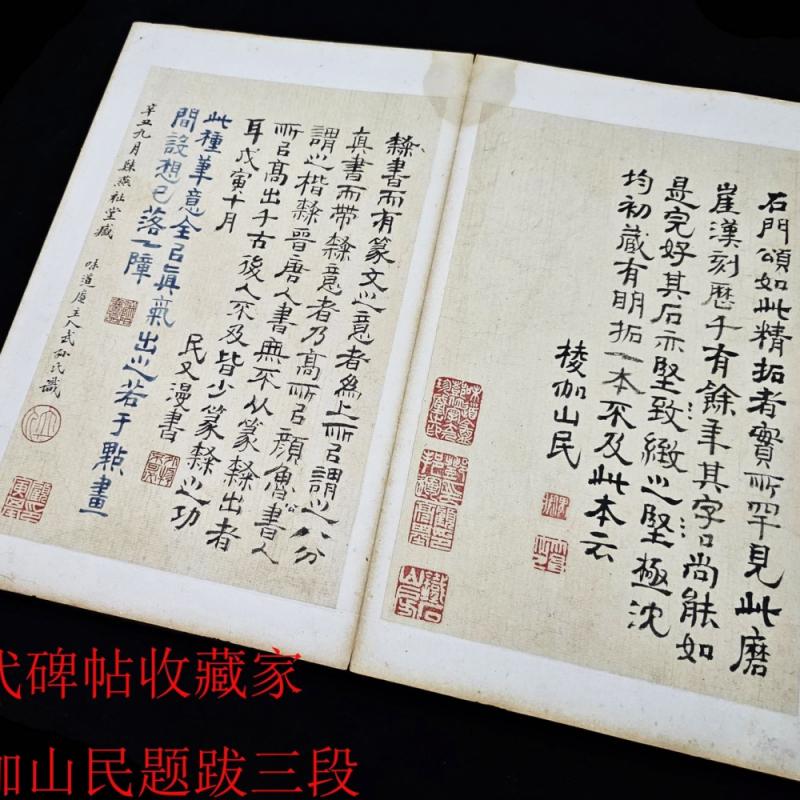 石門頌如此精拓者實所罕見此磨
崖漢刻歷千有餘年其字口尚能如
是完好其石亦堅致緻之堅極沈
均初藏有明拓一本不及此本云
棱伽山民
隸書而有篆文之意者為上所以謂之八分
真書而帶隸意者乃高所以顏魯書人
謂之楷隸晉唐人書無不從篆隸出者
所以高出千古後人不及皆少篆隸之功
耳戊寅十月 民又漫書
此種筆意全以真氣出之若于點畫
間設想已落障
辛丑九月燕社堂藏 味道廬主人武氏識
代碑帖收藏家
伽山民题跋三段